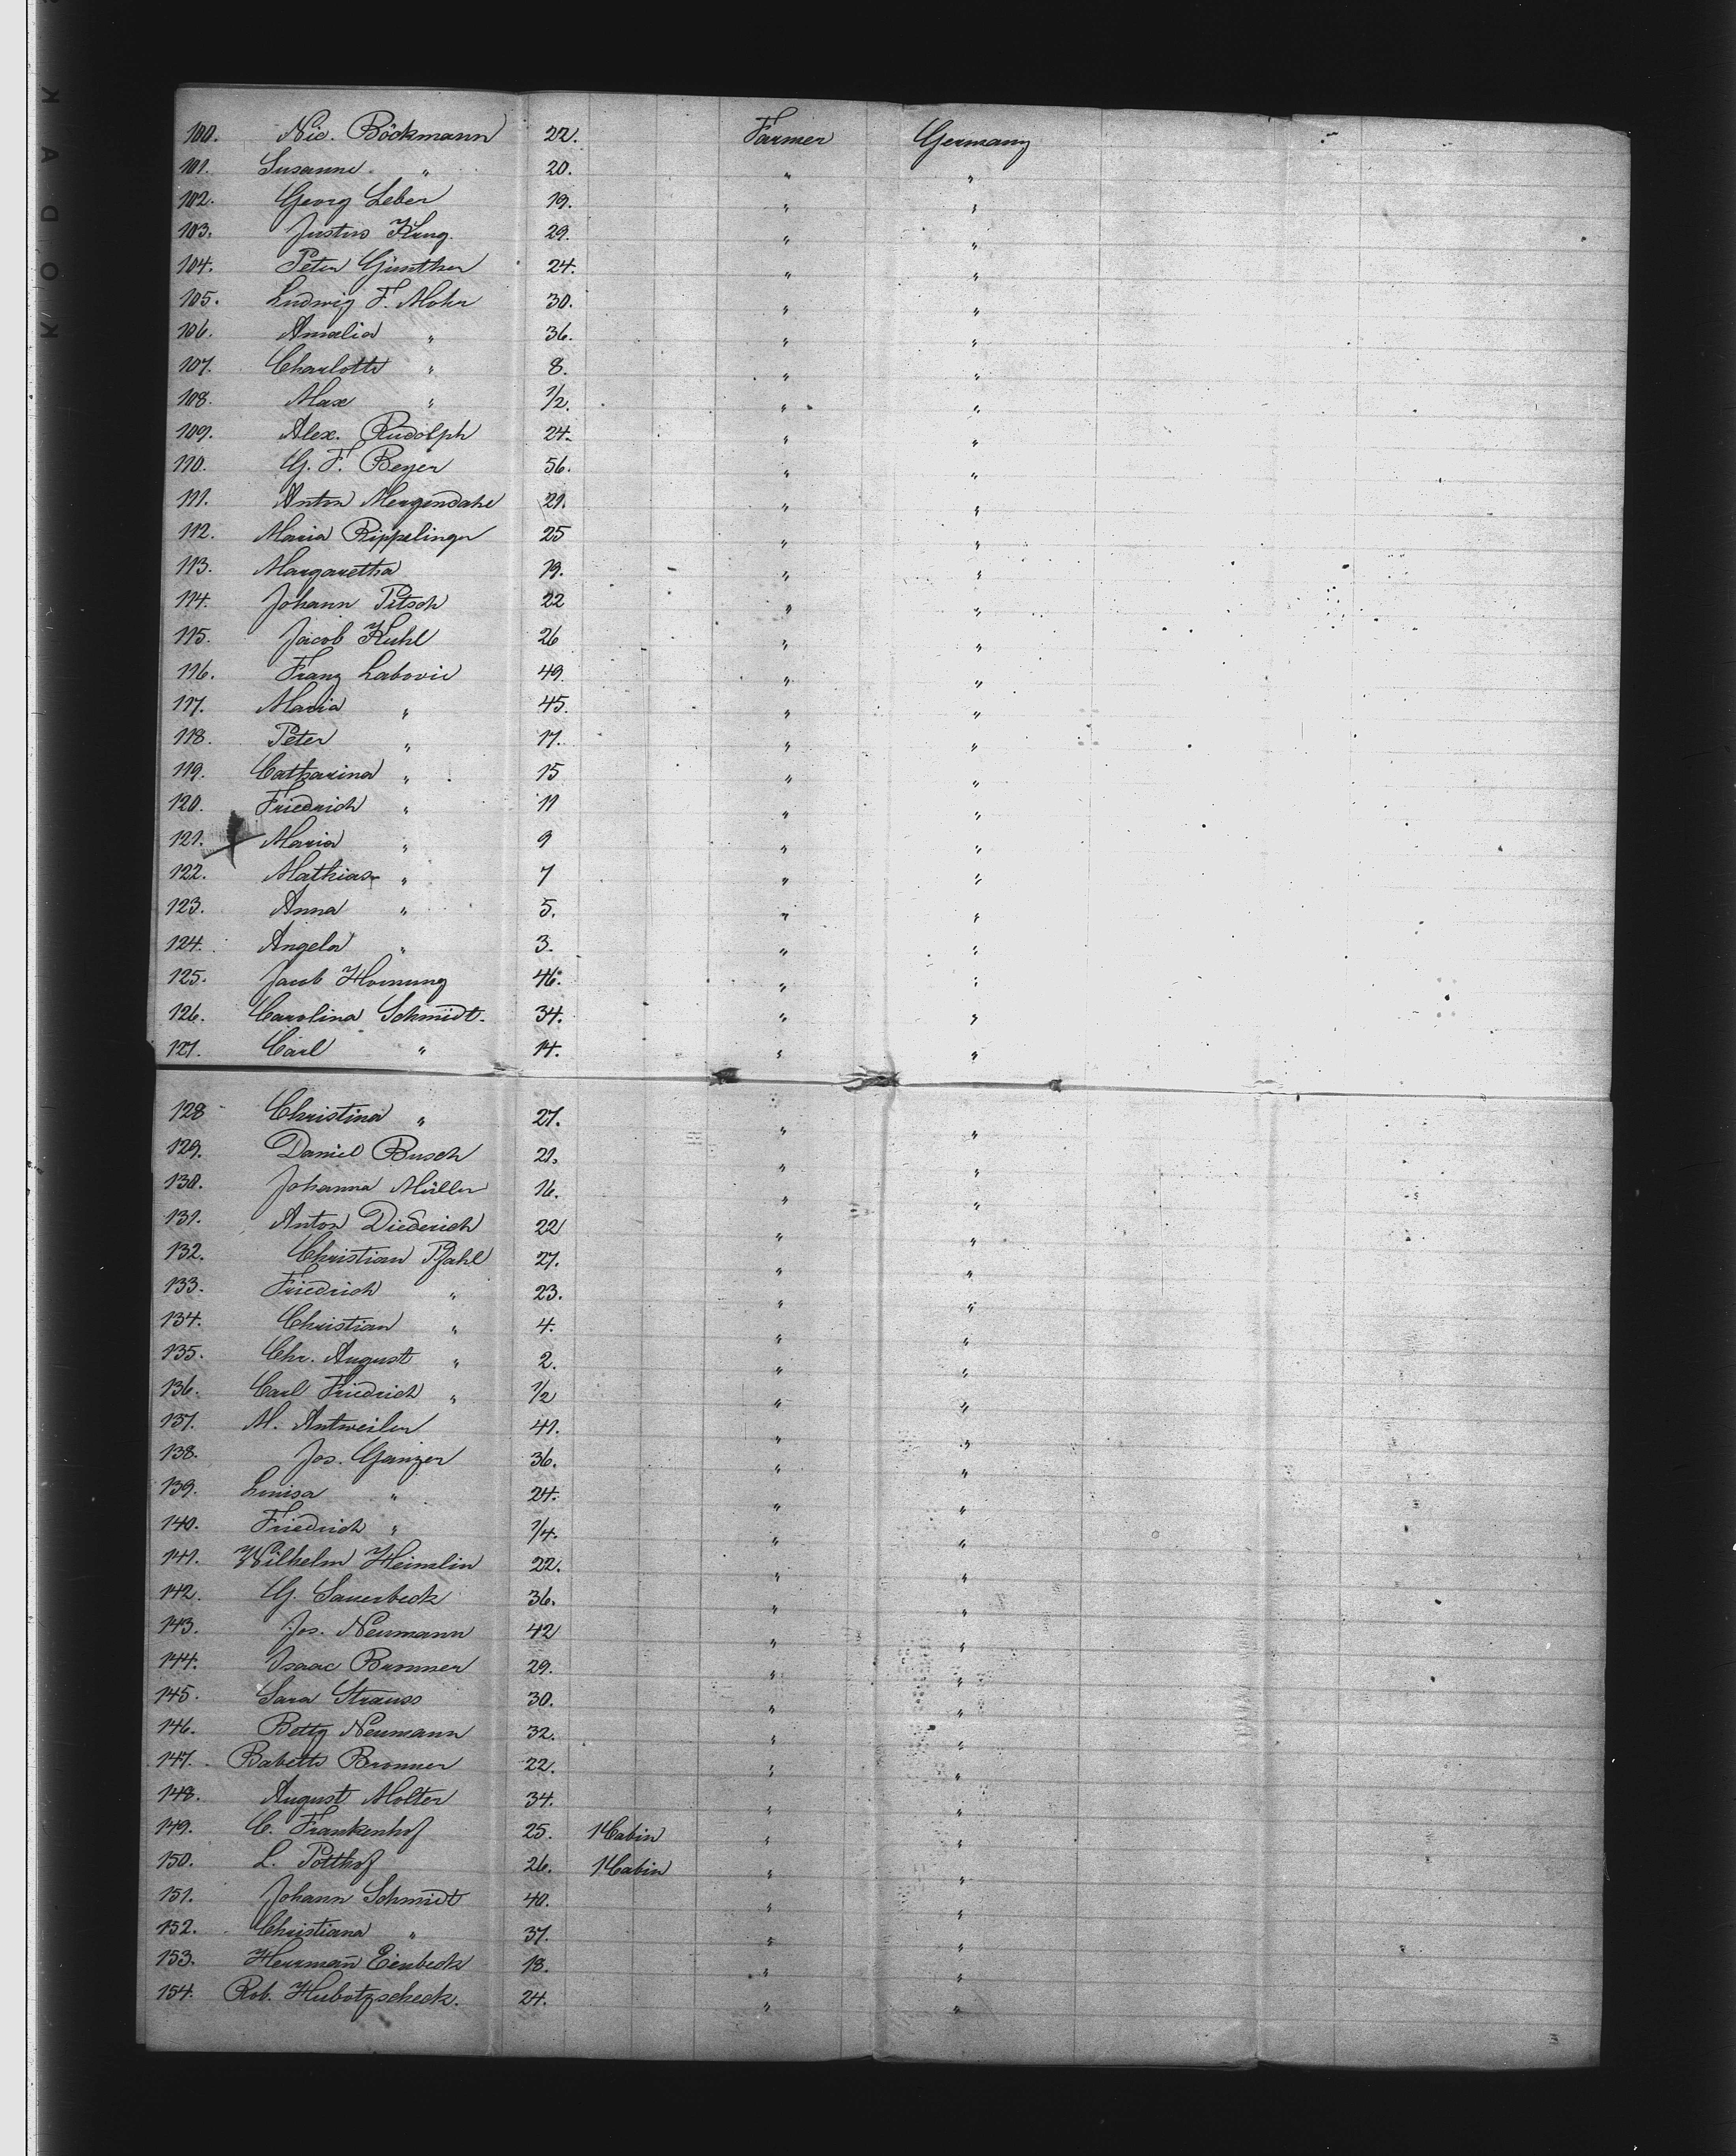 100. Nic. Böckmann 22. Farmer Germany
101. Susanne " 20. " "
102. Georg Leber 19. " "
103. Justus Klung. 29. " "
104. Peter Günther 24. " "
105. Ludwig F. Mohr 30. " "
106. Amalia " 36. " "
107. Charlotte " 8. " "
108. Max " 1/2. " "
109. Alex. Rudolph 24. " "
110. G. F. Beyer 56. " "
111. Anton Mergendahl 21. " "
112. Maria Rippelinger 25 " "
113. Margaretha 19. " "
114. Johann Pitsch 22 " "
115. Jacob Kuhl 26 " "
116. Franz Labovie 49. " "
117. Maria " 45. " "
118. Peter " 17. " "
119. Catharina " 15 " "
120. Friedrich " 11 " "
121. Maria " 9 " "
122. Mathias " 7 " "
123. Anna " 5. " "
124. Angela " 3. " "
125. Jacob Hornung 46. " "
126. Carolina Schmidt. 34. " "
127. Carl " 14. " "
128 Christina " 27. " "
129. Daniel Busch 21. " "
130. Johanna Müller 16. " "
131. Anton Diederich 22 " "
132. Christian Pfahl 27. " "
133. Friedrich " 23. " "
134. Christian " 4. " "
135. Chr. August " 2. " "
136. Carl Friedrich " 1/2 " "
137. M. Antweiler 41. " "
138. Jos. Ganzer 36. " "
139. Louisa " 24. " "
140. Friedrich " 1/4. " "
141. Wilhelm Heimlin 22. " "
142. G. Sauerbeck 36. " "
143. Jos. Neumann 42 " "
144. Isaac Bronner 29. " "
145. Sara Strauss 30. " "
146. Betty Neumann 32. " "
147. Babette Bronner 22. " "
148. August Molter 34. " "
149. C. Frankenhof 25. 1 Cabin " "
150. L. Potthof 26. 1 Cabin " "
151. Johann Schmidt 40. " "
152. Christiana " 37. " "
153. Herrman̄ Einbeck 18. " "
154. Rob. Hubotzscheck. 24. " "
KODAK